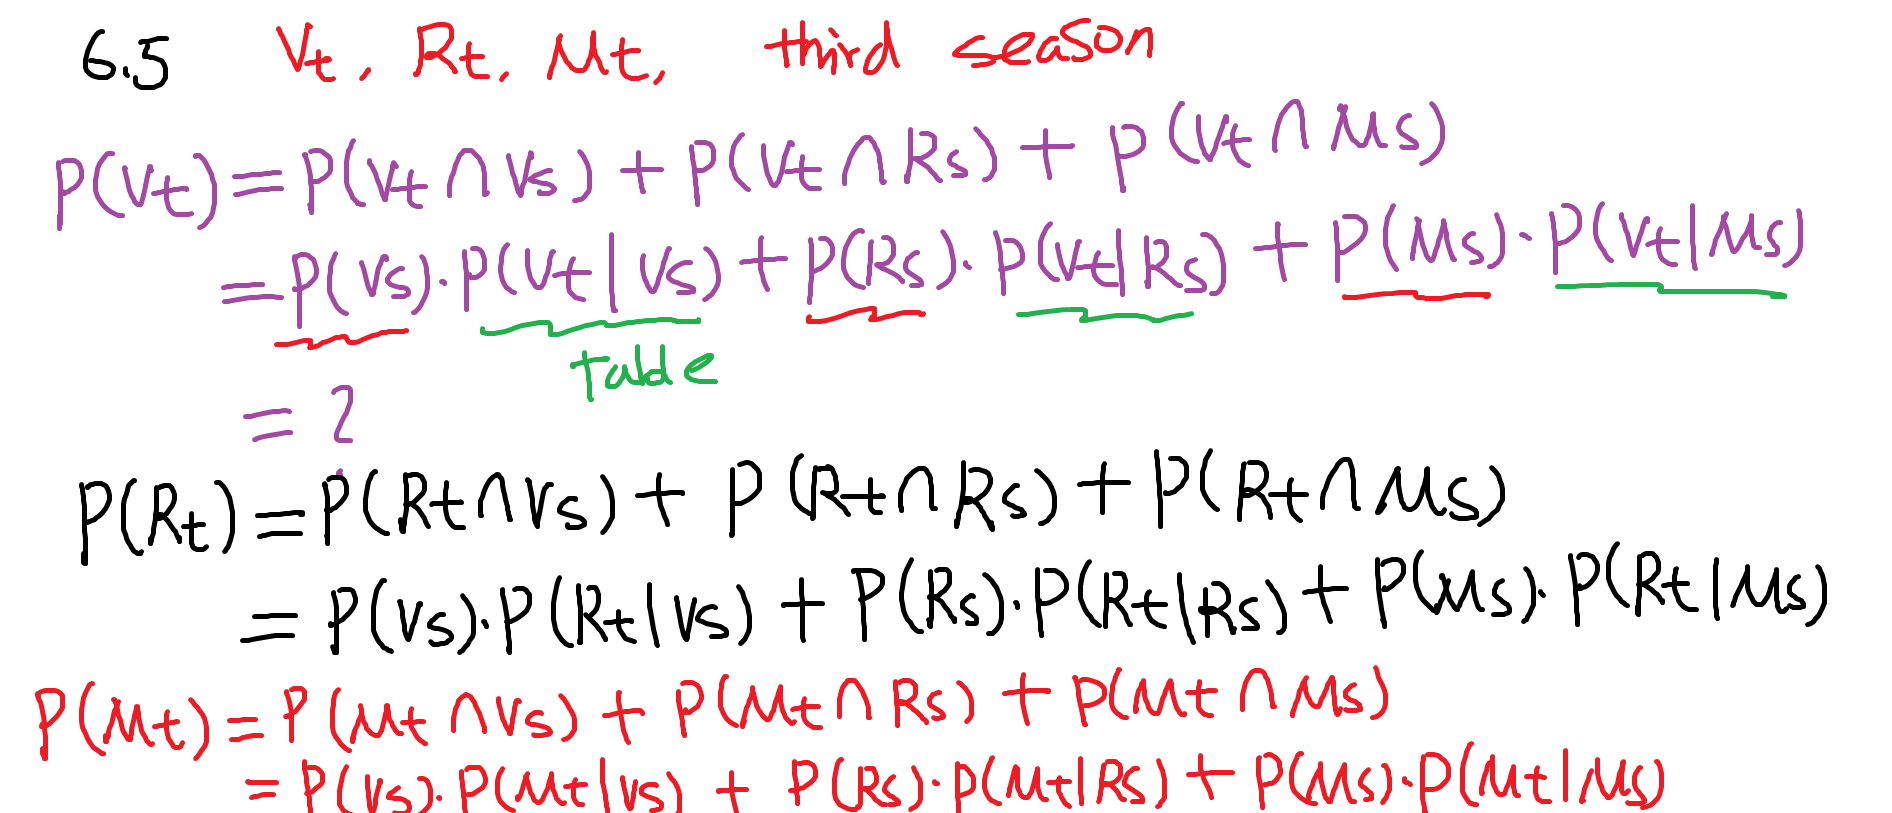 6.5 Vt, Rt, Mt, third season
P(Vt) = P(Vt ∩ Vs) + P(Vt ∩ Rs) + P(Vt ∩ Ms)
= P(Vs) · P(Vt | Vs) + P(Rs) · P(Vt | Rs) + P(Ms) · P(Vt | Ms)
table
= ?
P(Rt) = P(Rt ∩ Vs) + P(Rt ∩ Rs) + P(Rt ∩ Ms)
= P(Vs) · P(Rt | Vs) + P(Rs) · P(Rt | Rs) + P(Ms) · P(Rt | Ms)
P(Mt) = P(Mt ∩ Vs) + P(Mt ∩ Rs) + P(Mt ∩ Ms)
= P(Vs) · P(Mt | Vs) + P(Rs) · P(Mt | Rs) + P(Ms) · P(Mt | Ms)